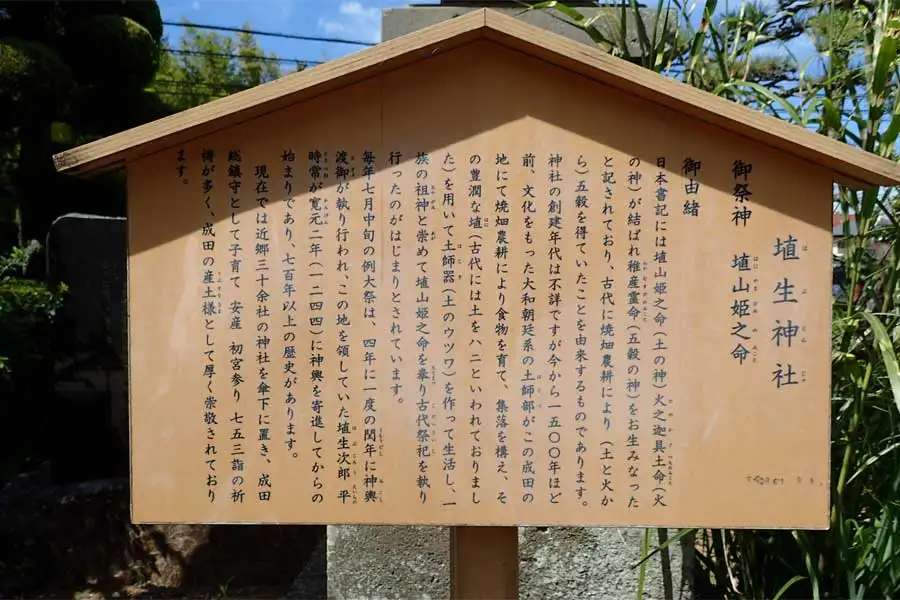 埴生神社
御祭神　埴山姫之命
御由緒
日本書記には埴山姫之命（土の神）火之迦具土命（火
の神）が結ばれ稚産霊命（五穀の神）をお生みなった
と記されており、古代に焼畑農耕により（土と火か
ら）五穀を得ていたことを由来するものであります。
神社の創建年代は不詳ですが今から一五〇〇年ほど
前、文化をもった大和朝廷系の土師部がこの成田の
地にて焼畑農耕により食物を育て、集落を構え、そ
の豊潤な埴（古代には土をハニといわれておりまし
た）を用いて土師器（土のウツワ）を作って生活し、一
族の祖神と崇めて埴山姫之命を奉り古代祭祀を執り
行ったのがはじまりとされています。
毎年七月中旬の例大祭は、四年に一度の閏年に神輿
渡御が執り行われ、この地を領していた埴生次郎平
時常が寛元二年（一二四四）に神輿を寄進してからの
始まりであり、七百年以上の歴史があります。
現在では近郷三十余社の神社を傘下に置き、成田
総鎮守として子育て　安産　初宮参り　七五三詣の祈
祷が多く、成田の産土様として厚く崇敬されており
ます。